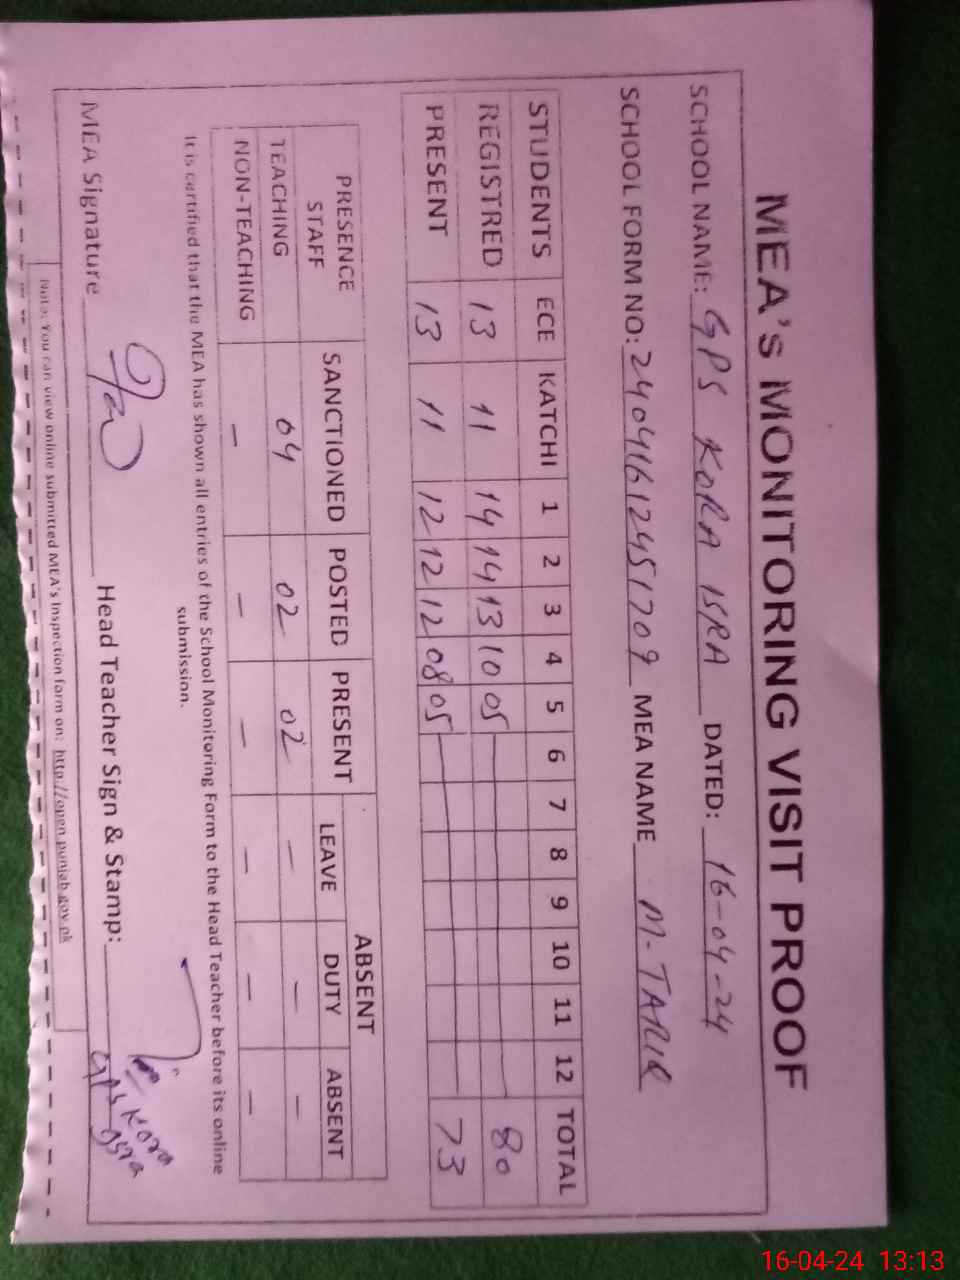 MEA's MONITORING VISIT PROOF
SCHOOL NAME: GPS KORA ISRA DATED: 16-04-24
SCHOOL FORM NO: 24041612451709 MEA NAME M-TARIQ
STUDENTS ECE KATCHI 1 2 3 4 5 6 7 8 9 10 11 12 TOTAL
REGISTRED 13 11 14 14 13 10 05 80
PRESENT 13 11 12 12 12 08 05 73
PRESENCE STAFF SANCTIONED POSTED PRESENT ABSENT
LEAVE DUTY ABSENT
TEACHING 04 02 02 - - -
NON-TEACHING - - - - - -
It is certified that the MEA has shown all entries of the School Monitoring Form to the Head Teacher before its online
submission.
MEA Signature Head Teacher Sign & Stamp:
GPS Kora
isra
Note: You can view online submitted MEA's Inspection form on: http://open.punjab.gov.pk
16-04-24 13:13